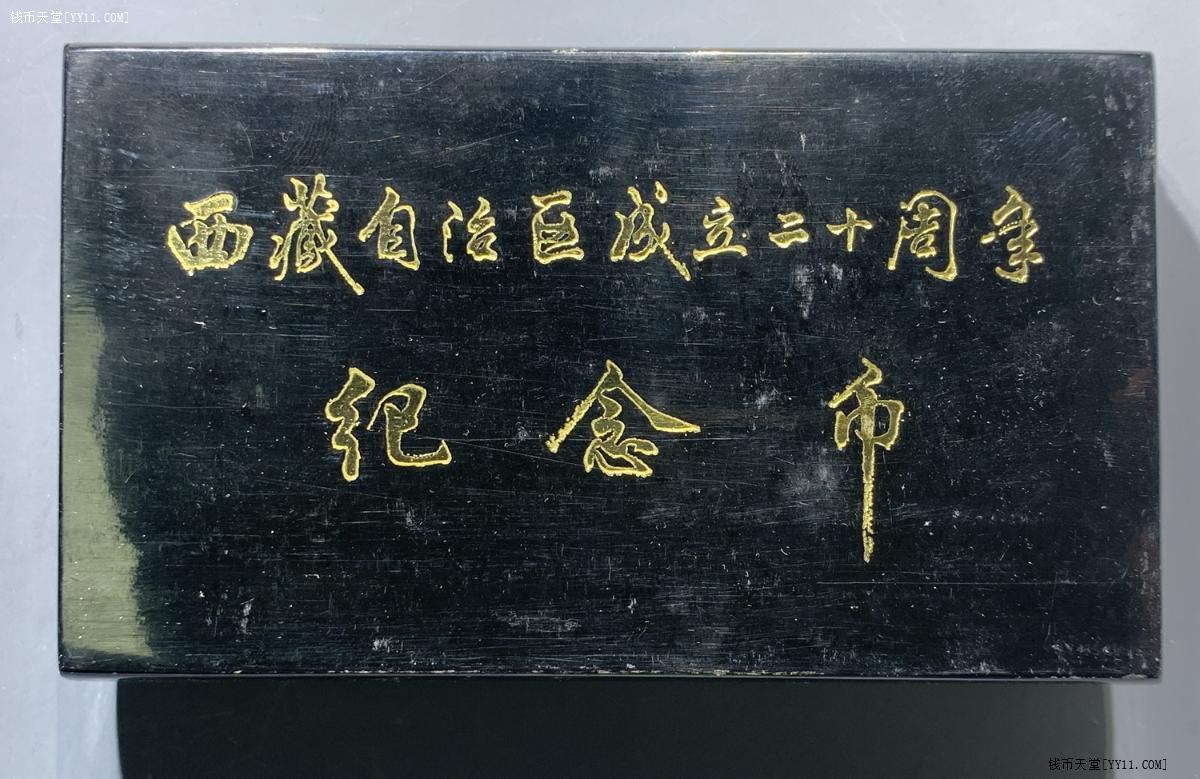 钱币天堂[YY11.COM]
西藏自治区成立二十周年
纪念币
钱币天堂[YY11.COM]